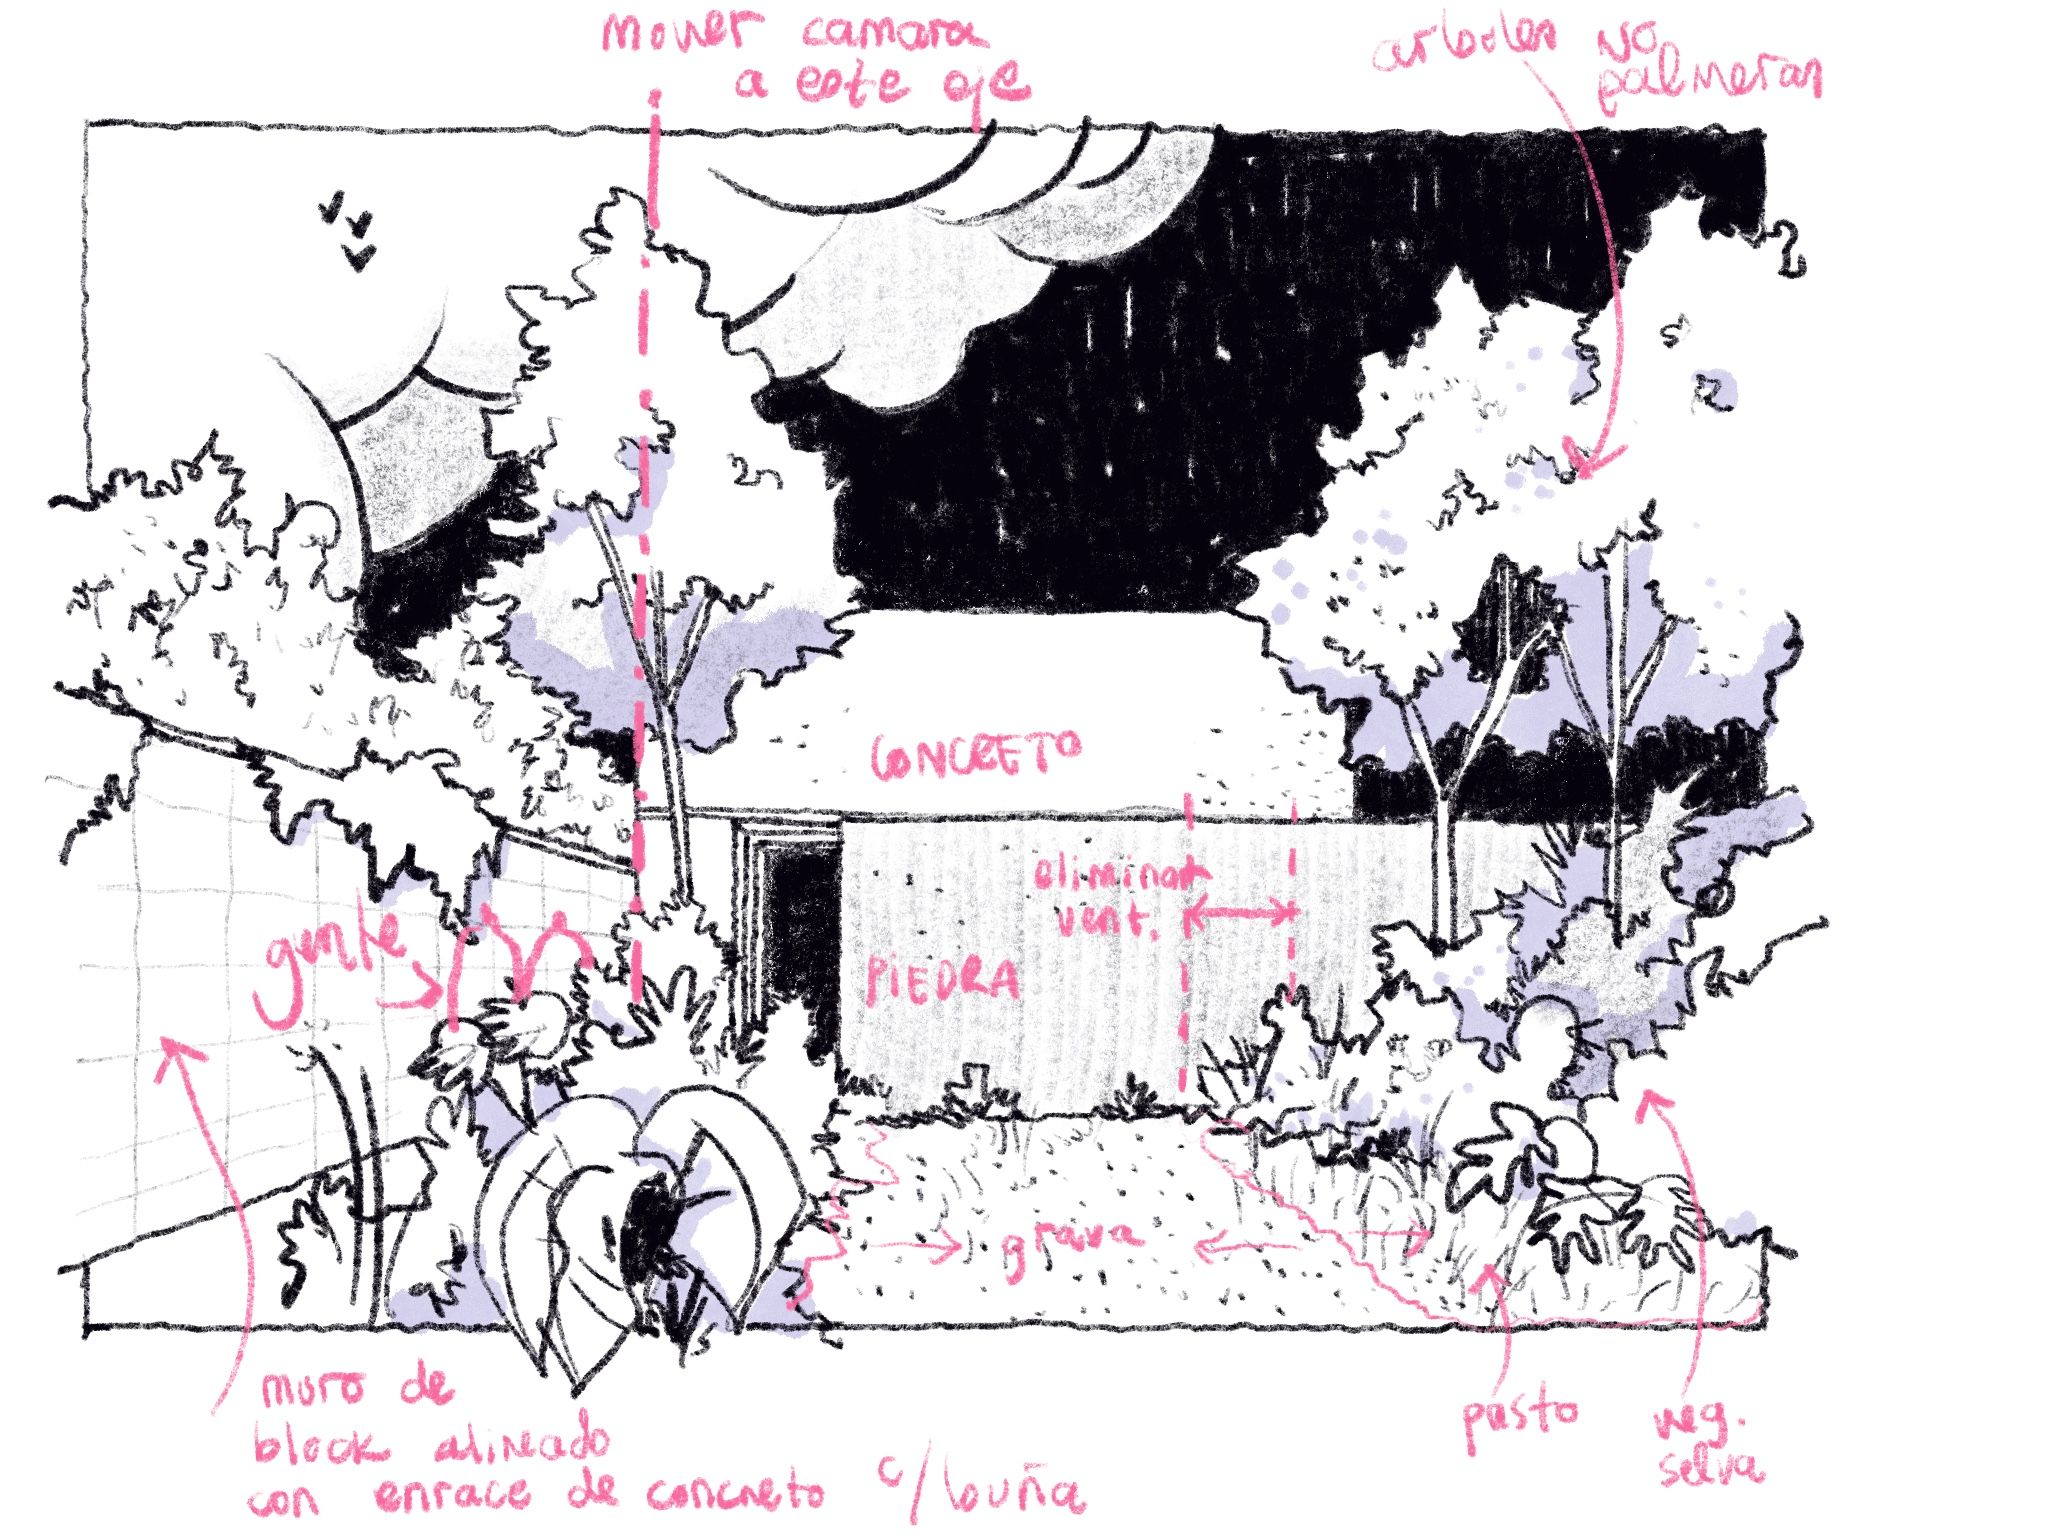 mover camara
a este eje
arboles no
palmeras
CONCRETO
eliminar
vent.
gente
PIEDRA
grava
muro de
block alineado
con enrace de concreto c/buña
pasto
veg.
selva